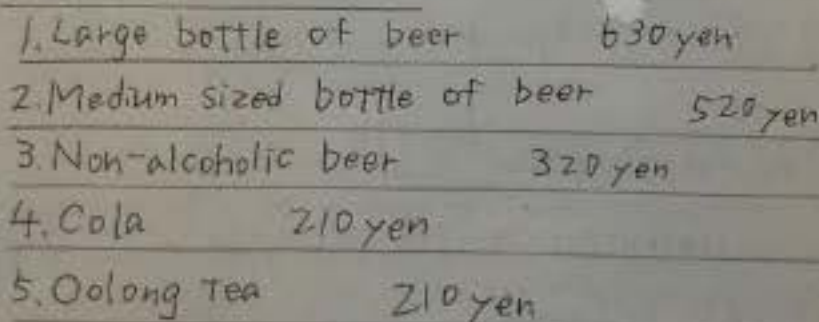 1. Large bottle of beer 630 yen
2. Medium sized bottle of beer 520 yen
3. Non-alcoholic beer 320 yen
4. Cola 210 yen
5. Oolong Tea 210 yen